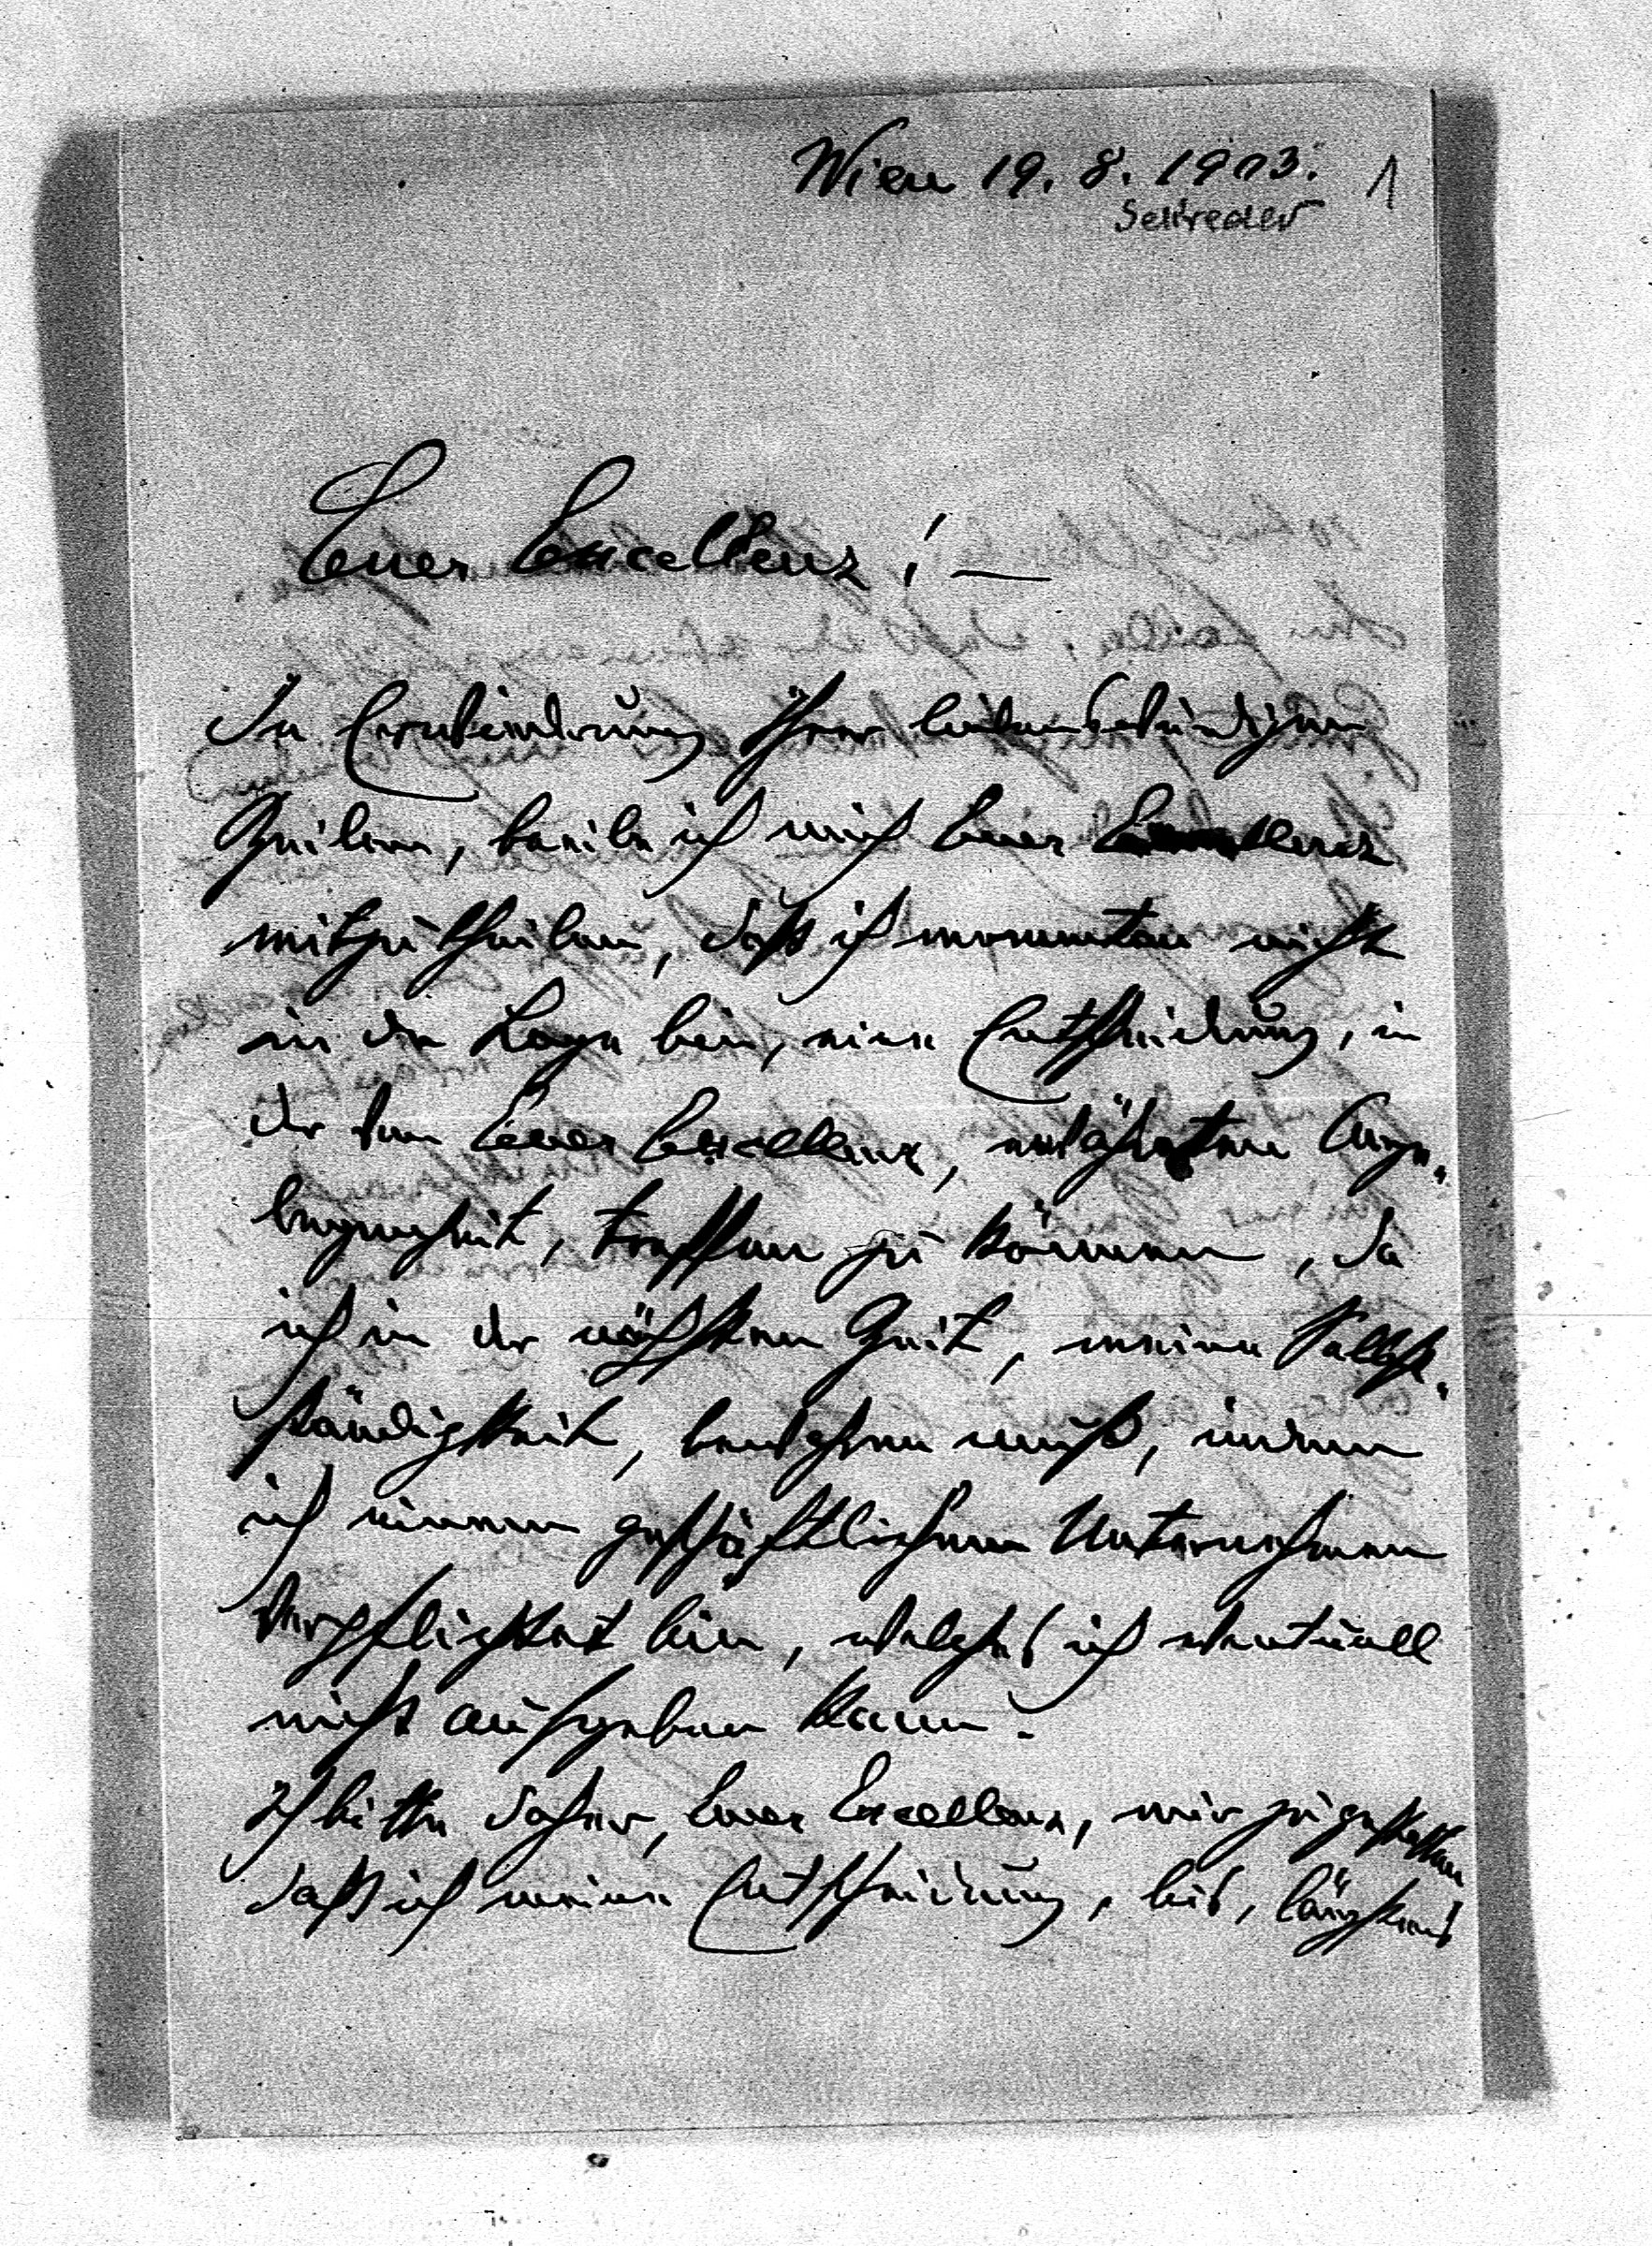 Wien 19. 8. 1903. 1
Schreder
Euer Excellenz! —
In Erwiderung Ihrer liebenswürdigen
Zeilen, beeile ich mich Euer Excellenz
mitzutheilen, daß ich momentan nicht
in der Lage bin, eine Entscheidung, in
der von Euer Excellenz, erwähnten Ange„
legenheit, treffen zu können, da
ich in der nächsten Zeit, meine Selbst„
ständigkeit, bewahren muß, indem
ich einem geschäftlichen Unternehmen
verpflichtet bin, welches ich eventuell
nicht aufgeben kann.
Ich bitte daher, Euer Excellenz, mir zu gestatten
daß ich meine Entscheidung, bis, längstens